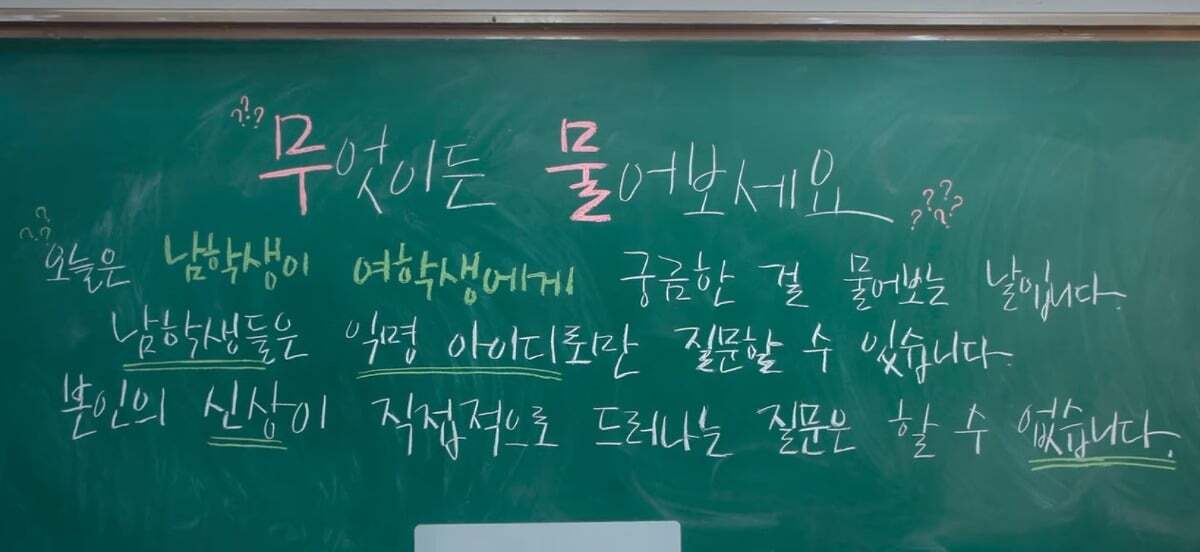 ??? 무엇이든 물어보세요 ?????
??? 오늘은 남학생이 여학생에게 궁금한 걸 물어보는 날입니다.
남학생들은 익명 아이디로만 질문할 수 있습니다.
본인의 신상이 직접적으로 드러나는 질문은 할 수 없습니다.